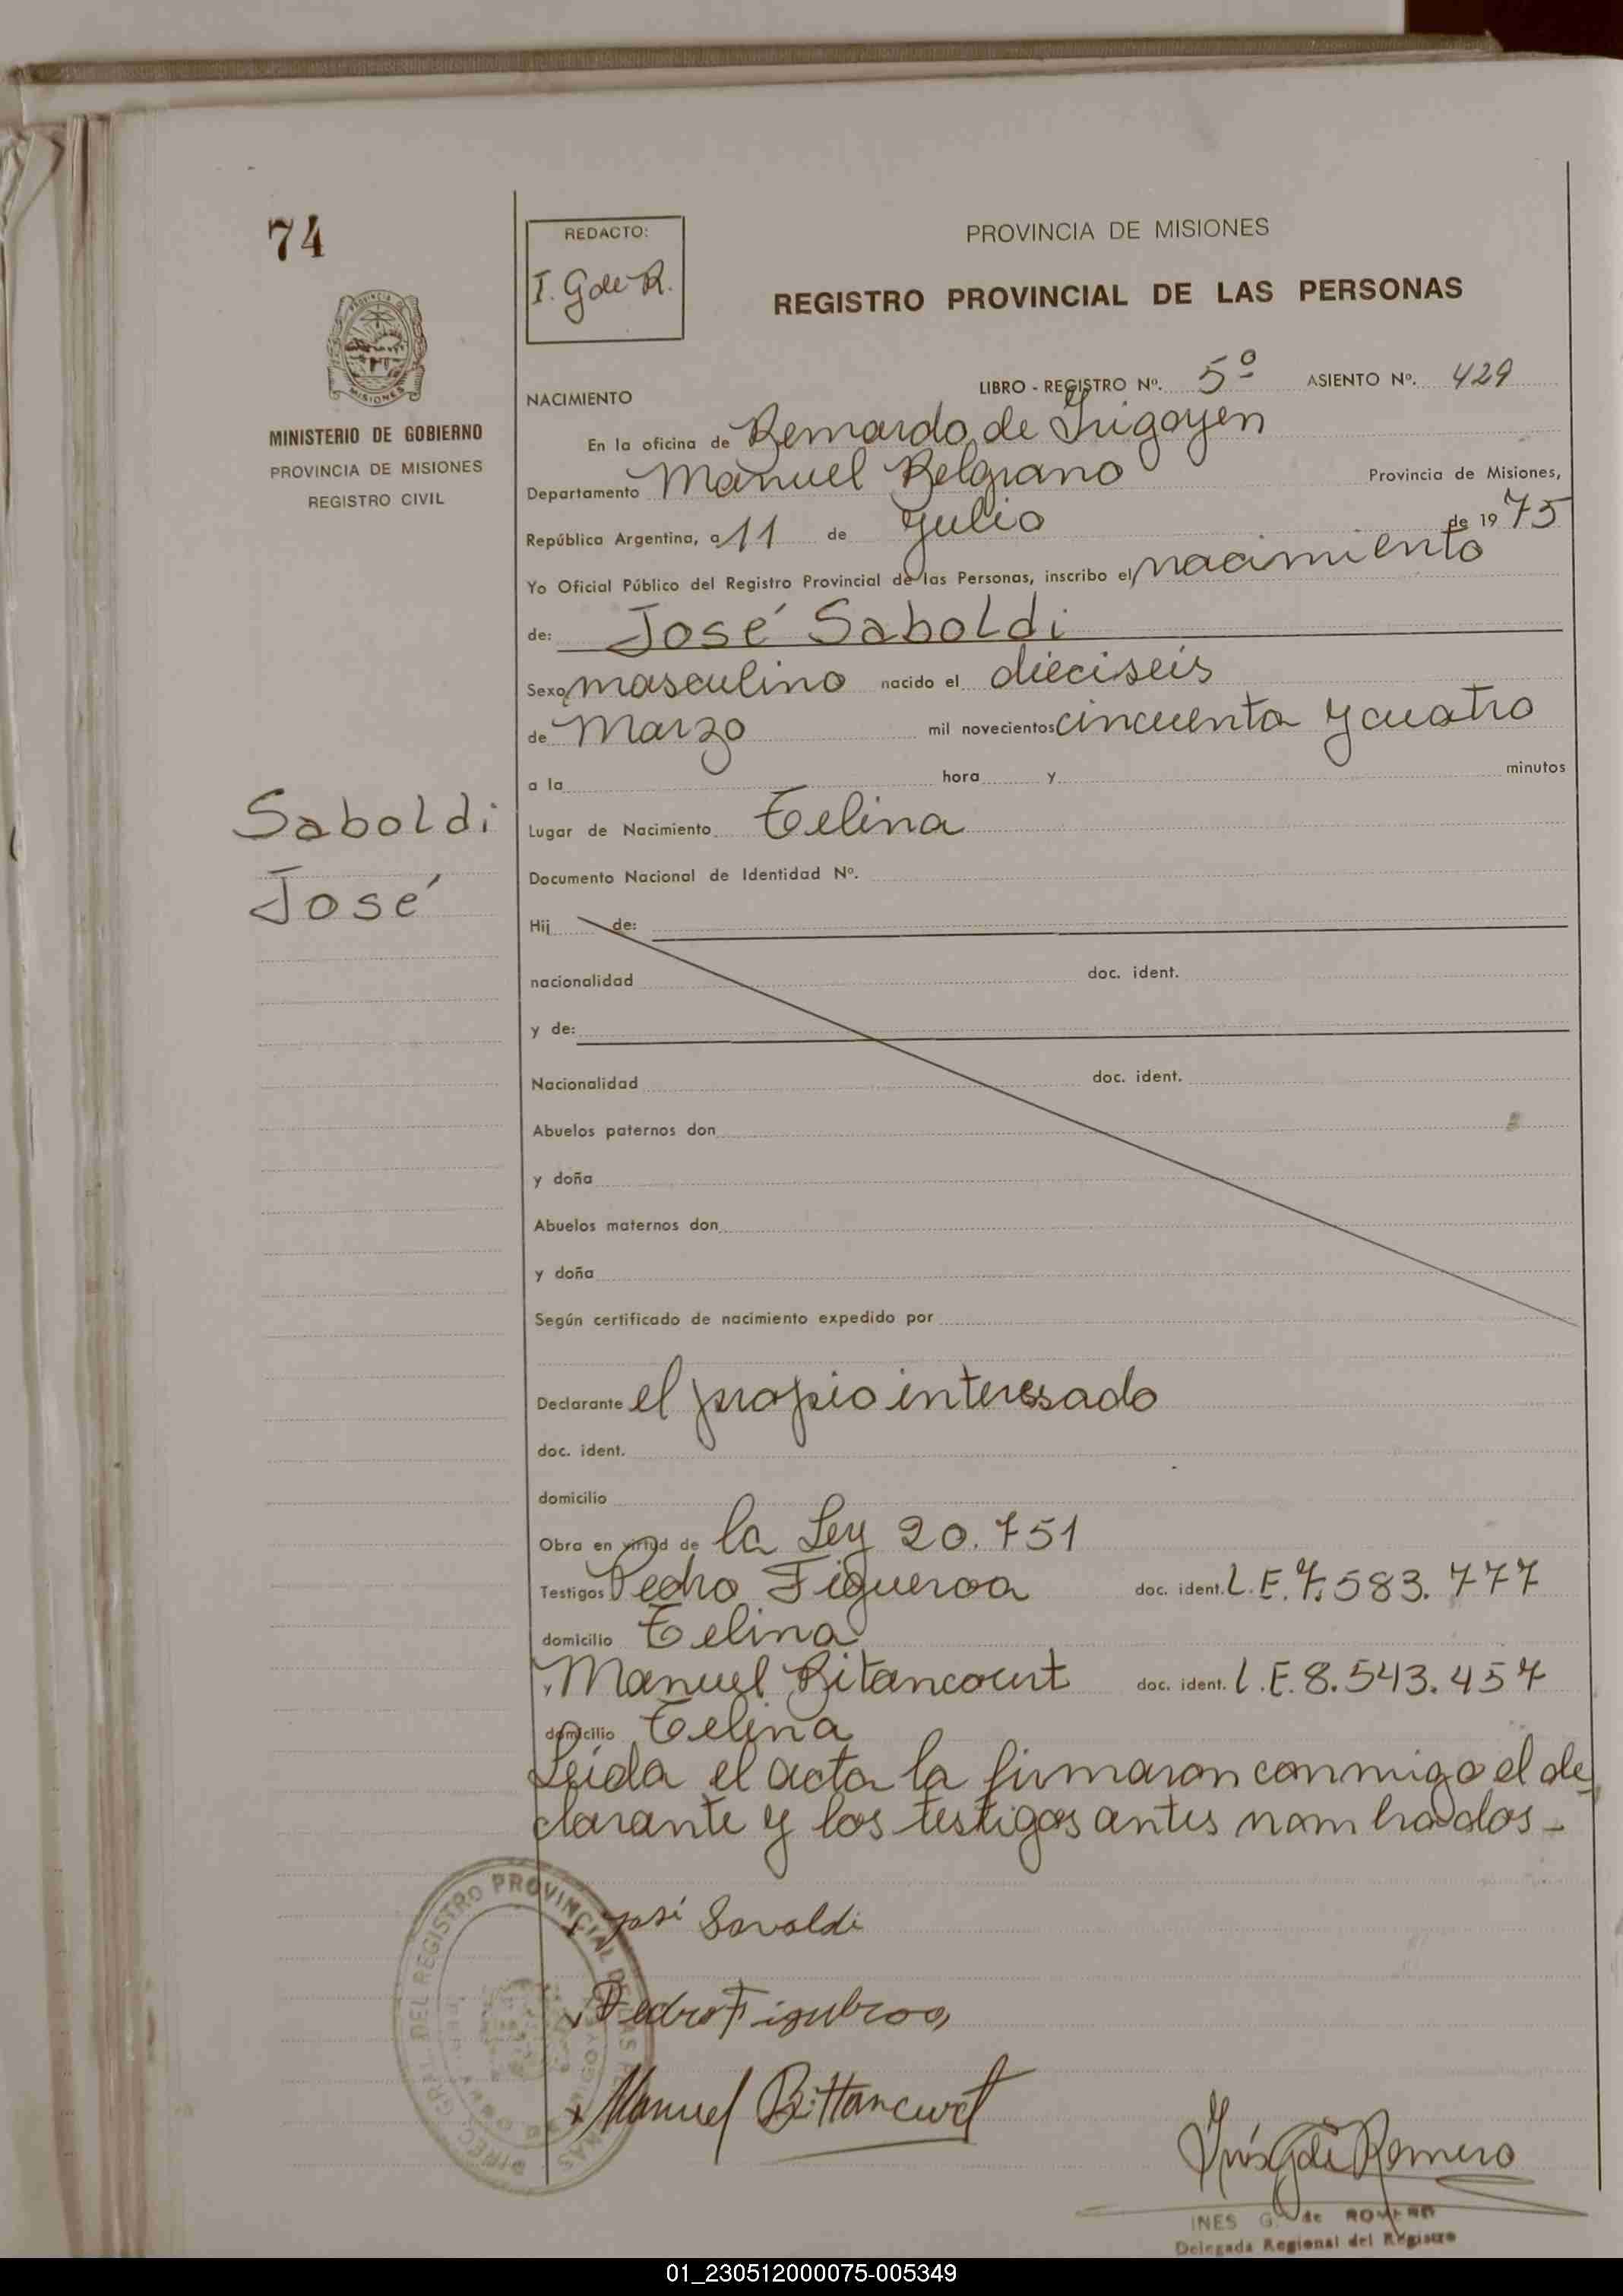 74
REDACTO:
I. G de R.
PROVINCIA DE MISIONES
REGISTRO PROVINCIAL DE LAS PERSONAS
MISIONES
MINISTERIO DE GOBIERNO
PROVINCIA DE MISIONES
REGISTRO CIVIL
LIBRO - REGISTRO Nº. 5º ASIENTO Nº. 429
NACIMIENTO
En la oficina de Bernardo de Irigoyen
Departamento Manuel Belgrano Provincia de Misiones,
República Argentina, a 11 de Julio de 1975
Yo Oficial Público del Registro Provincial de las Personas, inscribo el nacimiento
de: José Saboldi
Sexo masculino nacido el dieciseis
de Marzo mil novecientos cincuenta y cuatro
a la hora y minutos
Saboldi
José
Lugar de Nacimiento Celina
Documento Nacional de Identidad Nº.
Hij de:
nacionalidad doc. ident.
y de:
Nacionalidad doc. ident.
Abuelos paternos don
y doña
Abuelos maternos don
y doña
Según certificado de nacimiento expedido por
Declarante el propio interesado
doc. ident.
domicilio
Obra en virtud de la Ley 20.751
Testigos Pedro Figueroa doc. ident. L.E. 7.583.777
domicilio Celina
y Manuel Bitancourt doc. ident. L.E. 8.543.457
domicilio Celina
Leída el acta la firmaron conmigo el de
clarante y los testigos antes nombrados -
x José Savaldi
x Pedro Figueroa
x Manuel Bittancurt
DIREC. GRAL. DEL REGISTRO PROVINCIAL DE LAS PERSONAS
Inés G de Romero
INES G. de ROMERO
Delegada Regional del Registro
01_230512000075-005349